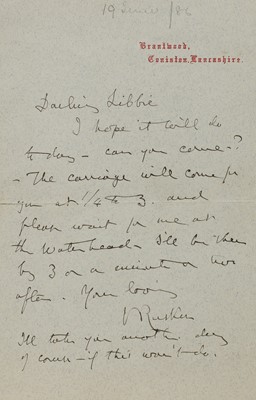 19 June /86
Brantwood,
Coniston, Lancashire.
Darling Libbie
I hope it will do
to day - can you come - ?
- The carriage will come for
you at 1/4 to 3. and
please wait for me at
the Waterhead. I'll be there
by 3 or a minute or two
after. Your loving
J Ruskin
I'll take you another day
of course - if this won't do.